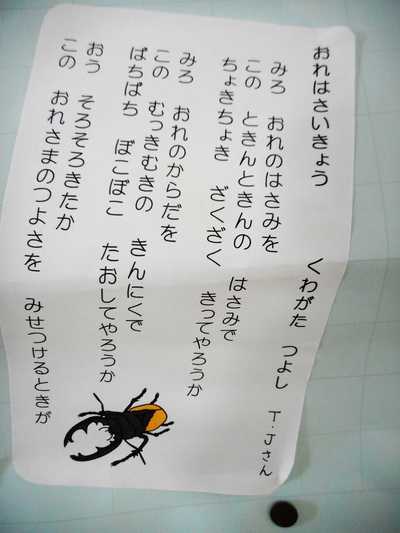 おれはさいきょう
くわがた　つよし　T・Jさん
みろ　おれのはさみを
この　ときんときんの　はさみで
ちょきちょき　ざくざく　きってやろうか
みろ　おれのからだを
この　むっきむきの　きんにくで
ばちばち　ぼこぼこ　たおしてやろうか
おう　そろそろきたか
この　おれさまのつよさを　みせつけるときが